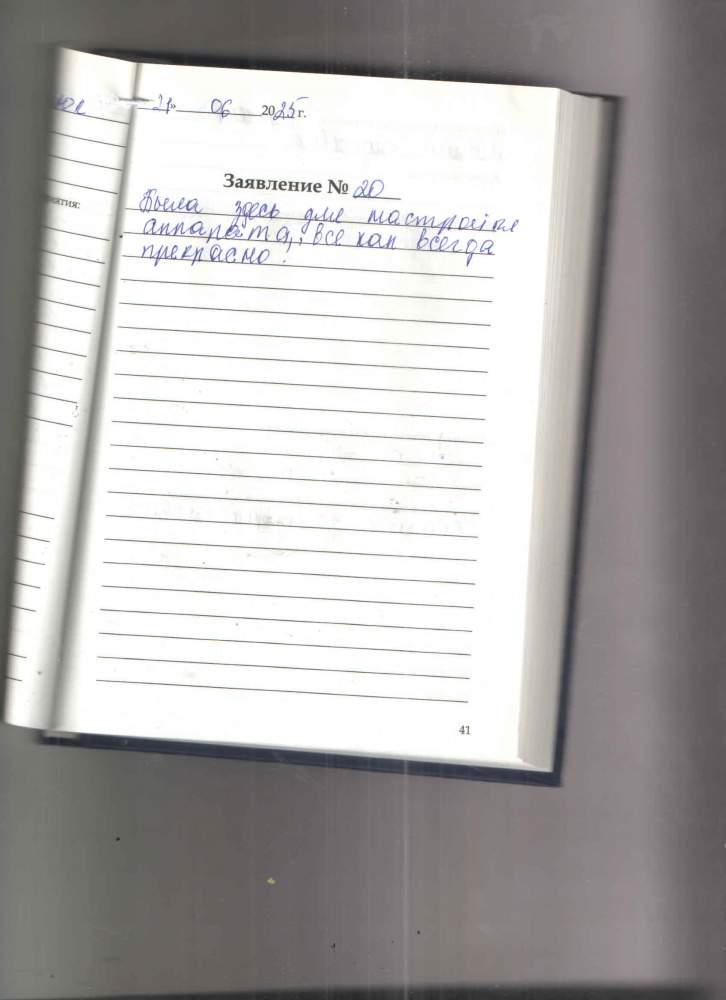 21» 06 2025 г.
Заявление № 20
ятия:
Была здесь для настройки
аппарата, все как всегда
прекрасно!
41